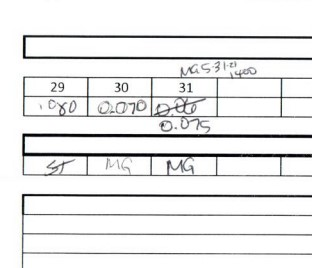 MG 5-31-21
1400
29 30 31
.080 0.070
0.075
ST MG MG